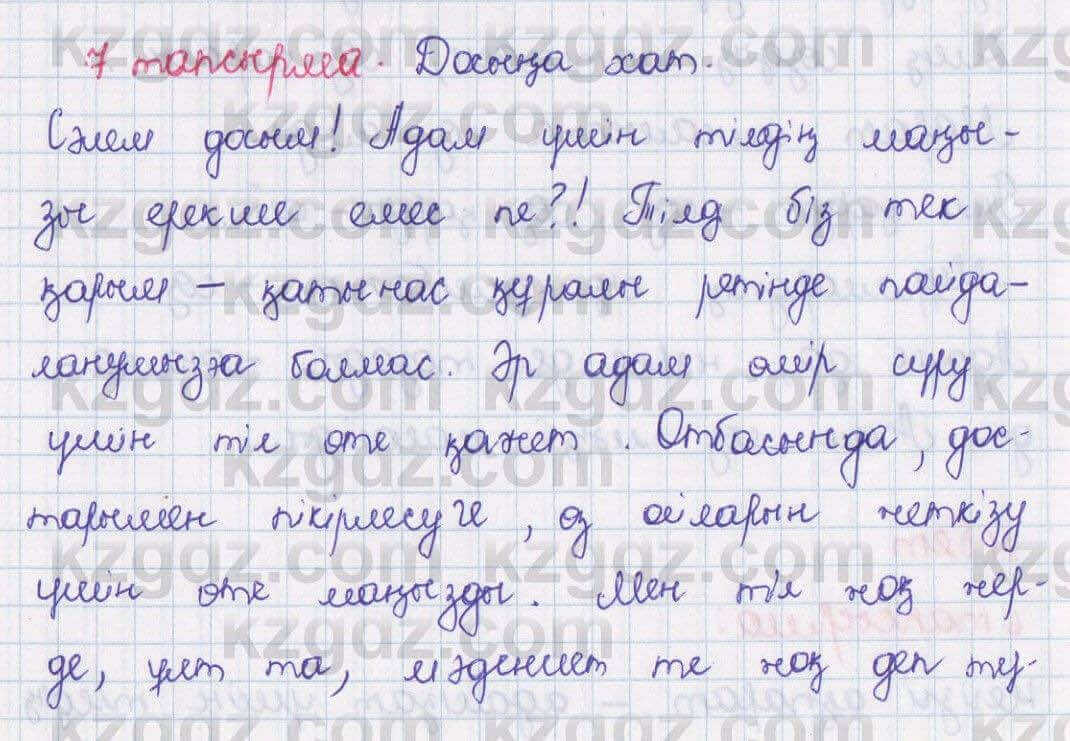 7 тапсырма. Досыңа хат.
Сәлем досым! Адам үшін тілдің маңы-
зы ерекше емес пе?! Тілд біз тек
қарым - қатынас құралы ретінде пайда-
ланумызға болмас. Әр адам өмір сүру
үшін тіл өте қажет. Отбасында, дос-
тарымен пікірлесуге, өз ойларын жеткізу
үшін өте маңызды. Мен тіл жоқ жер-
де, ұлт та, мәдениет те жоқ деп тү-
kzgdz.com